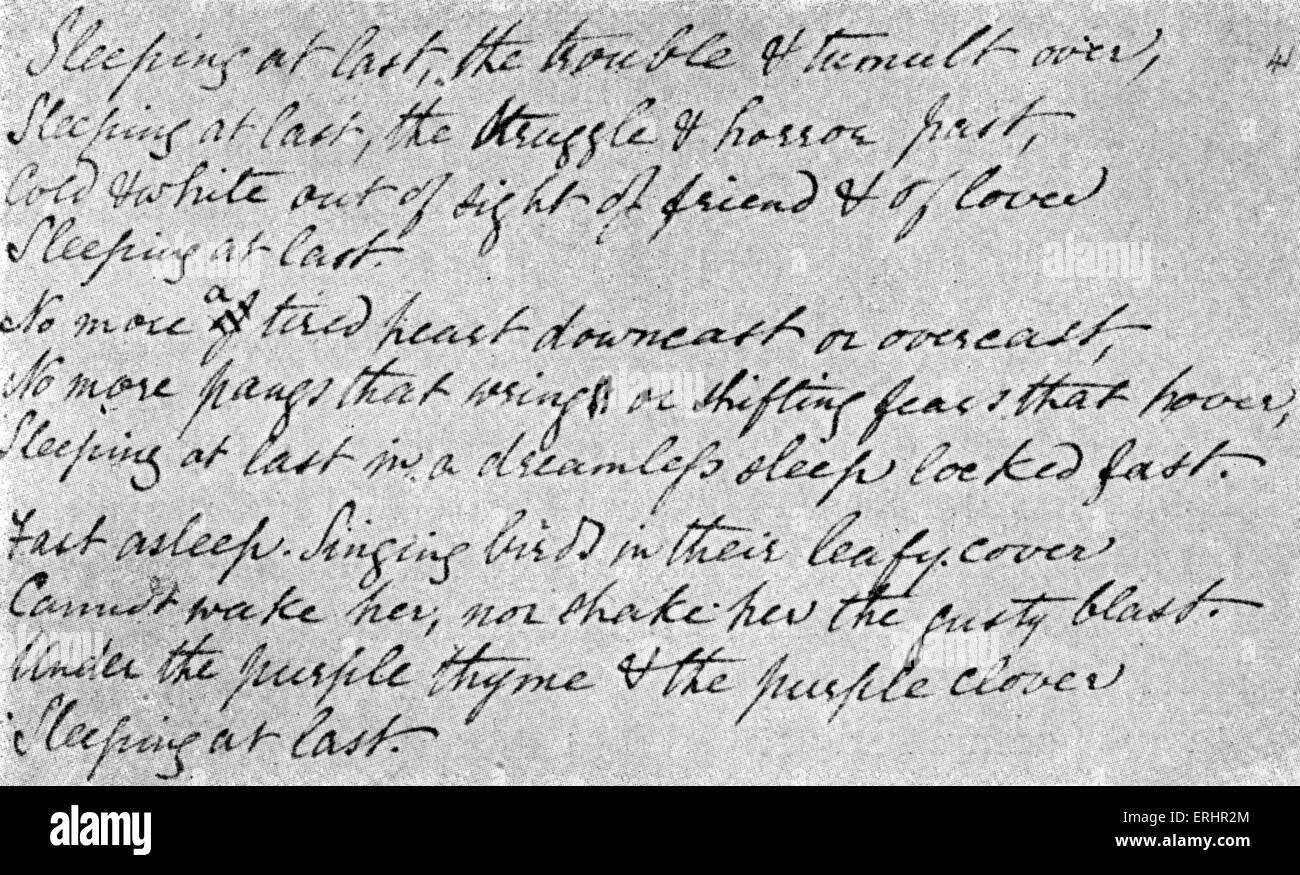 Sleeping at last, the trouble & tumult over, 4
Sleeping at last, the struggle & horror past,
Cold & white out of sight of friend & of lover
Sleeping at last.
No more a tired heart downcast or overcast,
No more pangs that wring or shifting fears that hover,
Sleeping at last in a dreamless sleep locked fast.
Fast asleep. Singing birds in their leafy cover
Cannot wake her, nor shake her the gusty blast.
Under the purple thyme & the purple clover
Sleeping at last.
alamy
alamy
alamy
alamy
alamy
alamy
Image ID: ERHR2M
www.alamy.com